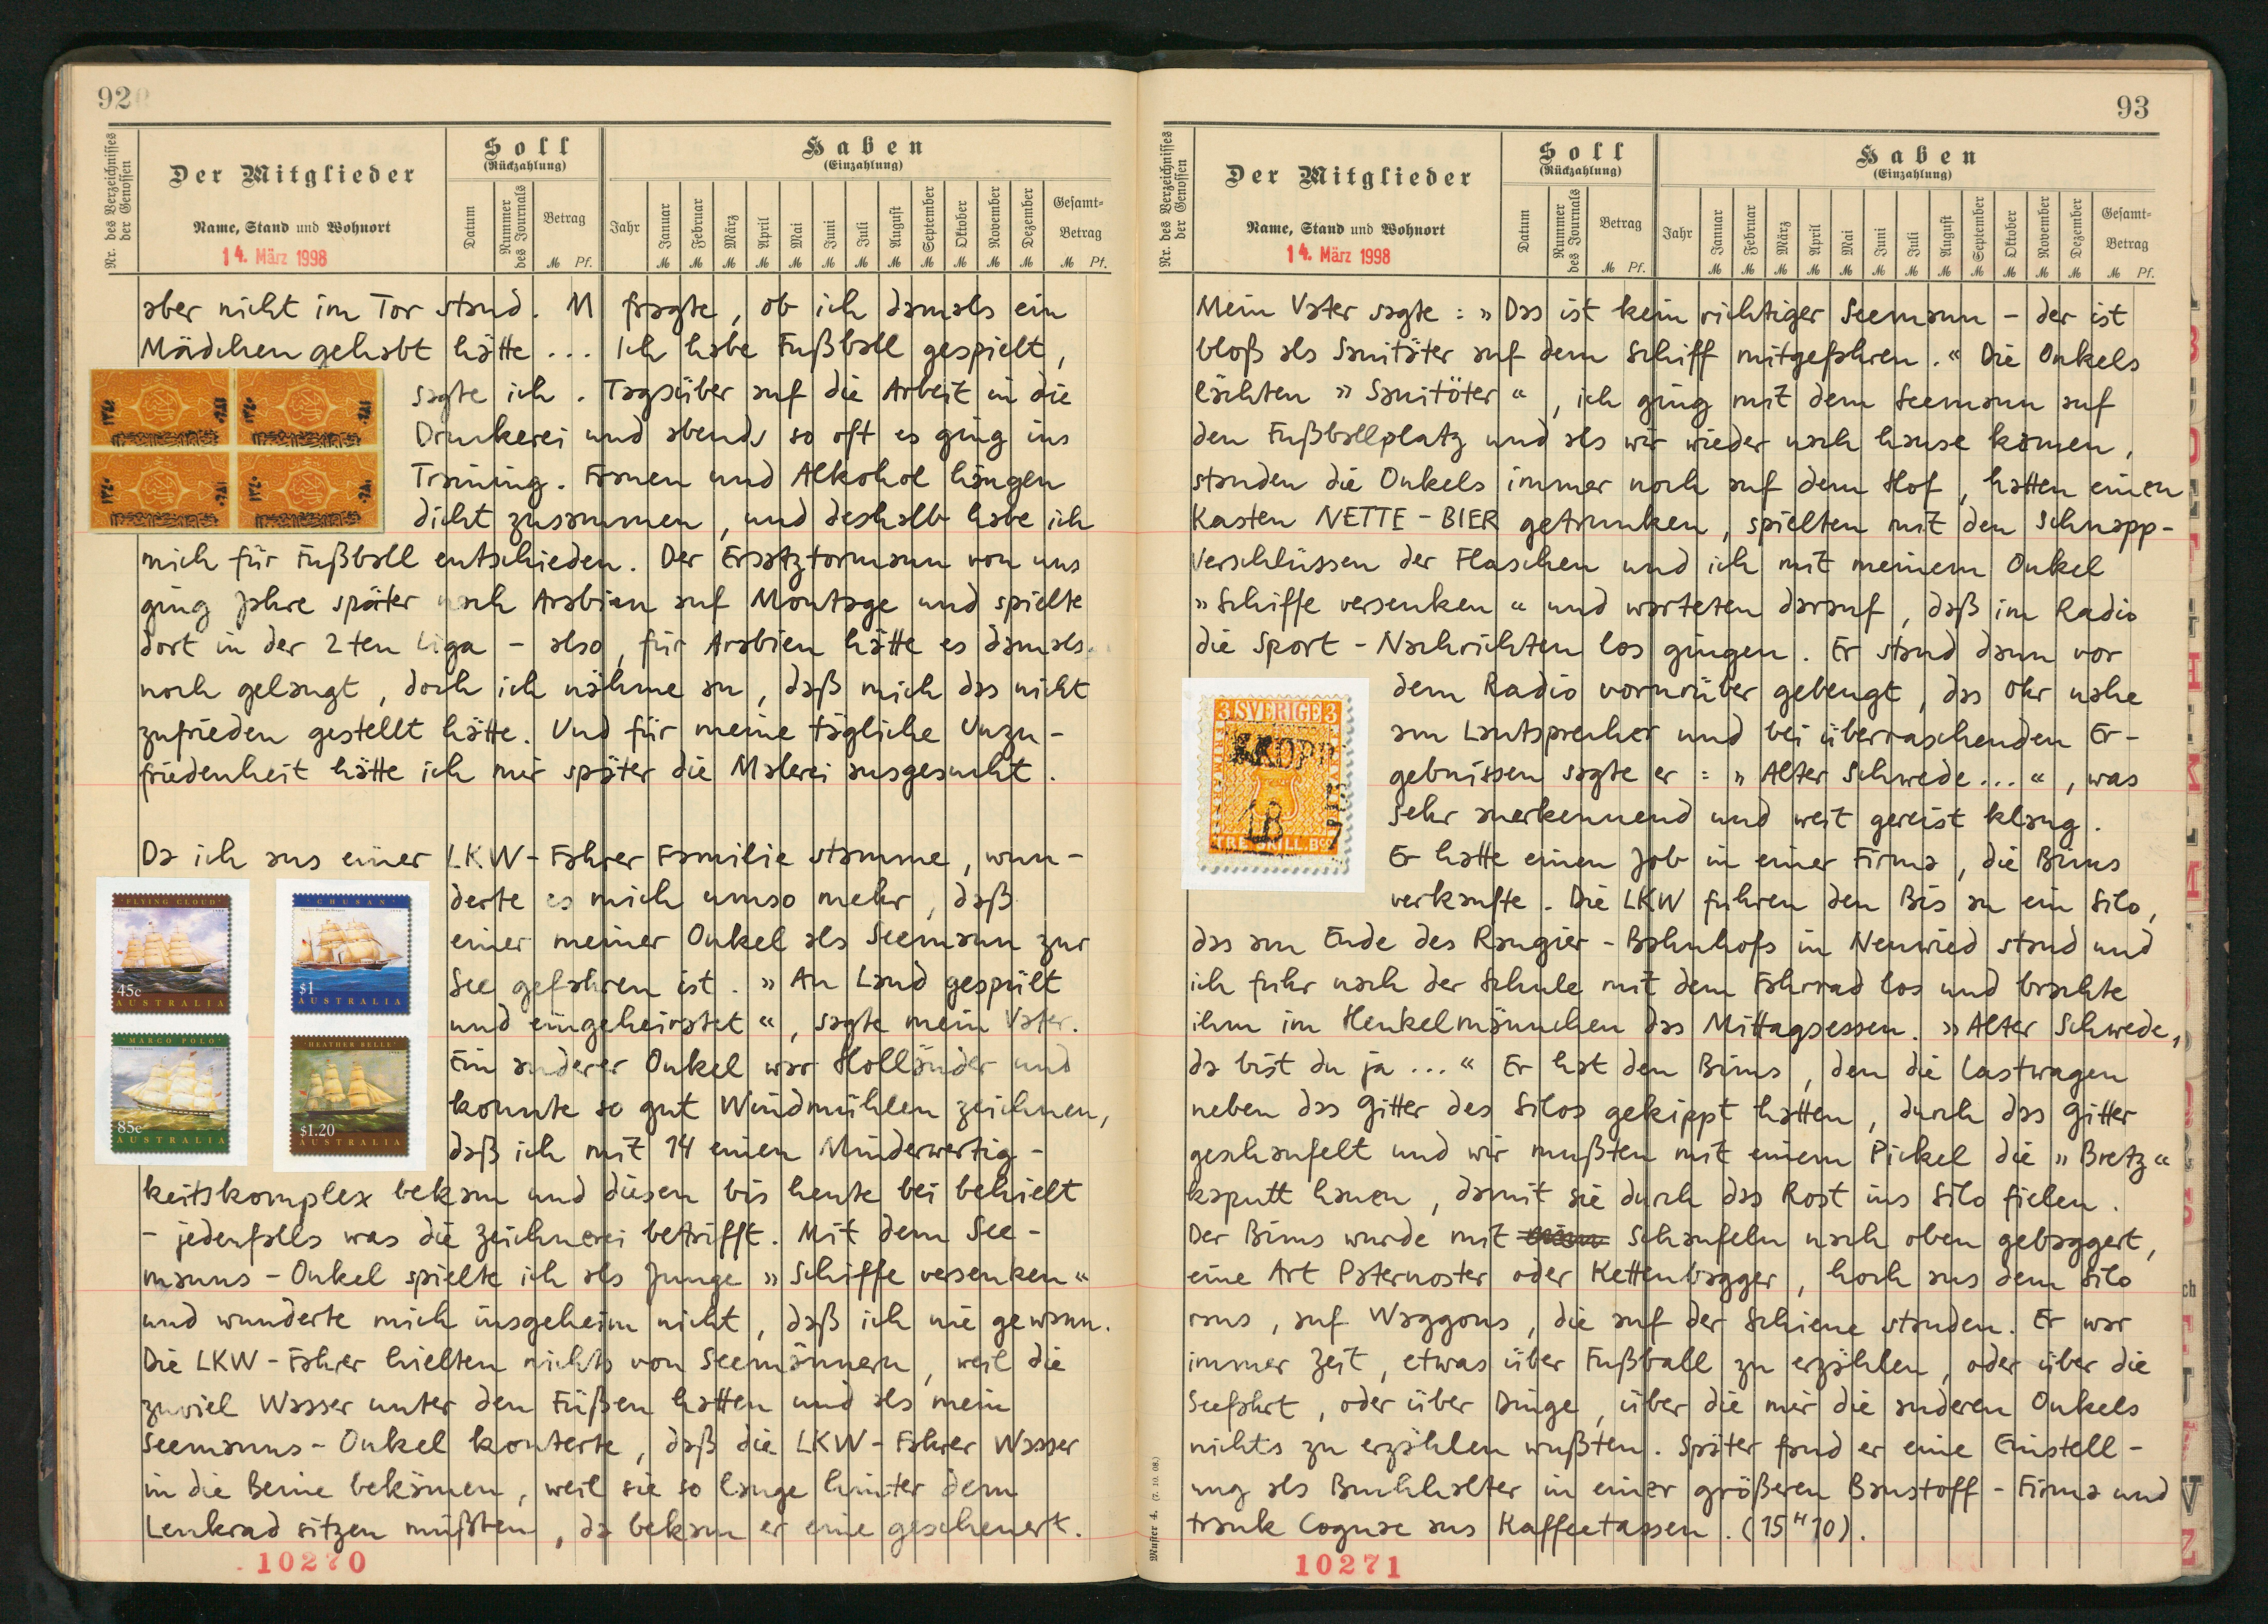 92
Nr. des Verzeichnisses der Genossen
Der Mitglieder
Name, Stand und Wohnort
14. März 1998
Soll
(Rückzahlung)
Datum
Nummer des Journals
Betrag
M Pf.
Haben
(Einzahlung)
Jahr
Januar
Februar
März
April
Mai
Juni
Juli
August
September
Oktober
November
Dezember
Gesamt-
Betrag
M M M M M M M M M M M M M Pf.
aber nicht im Tor stand. M fragte, ob ich damals ein
Mädchen gehabt hätte ... Ich habe Fußball gespielt,
sagte ich. Tagsüber auf die Arbeit in die
Druckerei und abends so oft es ging ins
Training. Frauen und Alkohol hängen
dicht zusammen, und deshalb habe ich
mich für Fußball entschieden. Der Ersatztormann von uns
ging Jahre später nach Arabien auf Montage und spielte
dort in der 2ten Liga - also, für Arabien hätte es damals
noch gelangt, doch ich nähme an, daß mich das nicht
zufrieden gestellt hätte. Und für meine tägliche Unzu-
friedenheit hätte ich mir später die Malerei ausgesucht.
Da ich aus einer LKW-Fahrer Familie stamme, wun-
derte es mich umso mehr, daß
einer meiner Onkel als Seemann zur
See gefahren ist. »An Land gespült
und eingeheiratet«, sagte mein Vater.
Ein anderer Onkel war Holländer und
konnte so gut Windmühlen zeichnen,
daß ich mit 14 einen Minderwertig-
keitskomplex bekam und diesen bis heute bei behielt
- jedenfalls was die Zeichnerei betrifft. Mit dem See-
manns-Onkel spielte ich als Junge »Schiffe versenken«
und wunderte mich insgeheim nicht, daß ich nie gewann.
Die LKW-Fahrer hielten nichts von Seemännern, weil die
zuviel Wasser unter den Füßen hatten und als mein
Seemanns-Onkel konterte, daß die LKW-Fahrer Wasser
in die Beine bekämen, weil sie so lange hinter dem
Lenkrad sitzen müßten, da bekam er eine gescheuert.
"FLYING CLOUD"
45c
AUSTRALIA
"CHUSAN"
$1
AUSTRALIA
"MARCO POLO"
85c
AUSTRALIA
"HEATHER BELLE"
$1.20
AUSTRALIA
10270
93
Nr. des Verzeichnisses der Genossen
Der Mitglieder
Name, Stand und Wohnort
14. März 1998
Soll
(Rückzahlung)
Datum
Nummer des Journals
Betrag
M Pf.
Haben
(Einzahlung)
Jahr
Januar
Februar
März
April
Mai
Juni
Juli
August
September
Oktober
November
Dezember
Gesamt-
Betrag
M M M M M M M M M M M M M Pf.
Mein Vater sagte: »Das ist kein richtiger Seemann - der ist
bloß als Sanitäter auf dem Schiff mitgefahren.« Die Onkels
lachten »Sanitöter«, ich ging mit dem Seemann auf
den Fußballplatz und als wir wieder nach hause kamen,
standen die Onkels immer noch auf dem Hof, hatten einen
Kasten NETTE-BIER getrunken, spielten mit den Schnapp-
verschlüssen der Flaschen und ich mit meinem Onkel
»Schiffe versenken« und warteten darauf, daß im Radio
die Sport-Nachrichten los gingen. Er stand dann vor
dem Radio vornüber gebeugt, das Ohr nahe
am Lautsprecher und bei überraschenden Er-
gebnissen sagte er: »Alter Schwede...«, was
sehr anerkennend und weit gereist klang.
Er hatte einen Job in einer Firma, die Bims
verkaufte. Die LKW fuhren den Bis an ein Silo,
das am Ende des Rangier-Bahnhofs in Neuwied stand und
ich fuhr nach der Schule mit dem Fahrrad los und brachte
ihm im Henkelmännchen das Mittagsessen. »Alter Schwede,
da bist du ja ...« Er hat den Bims, den die Lastwagen
neben das Gitter des Silos gekippt hatten, durch das Gitter
geschaufelt und wir mußten mit einem Pickel die »Bretz«
kaputt hauen, damit sie durch das Rost ins Silo fielen.
Der Bims wurde mit Schaufeln nach oben gebaggert,
eine Art Paternoster oder Kettenbagger, hoch aus dem Silo
raus, auf Waggons, die auf der Schiene standen. Er war
immer Zeit, etwas über Fußball zu erzählen, oder über die
Seefahrt, oder über Dinge, über die mir die anderen Onkels
nichts zu erzählen wußten. Später fand er eine Einstell-
ung als Buchhalter in einer größeren Baustoff-Firma und
trank Cognac aus Kaffeetassen. (15"10).
3 SVERIGE 3
18
7
Muster 4. (7. 10. 08.)
10271